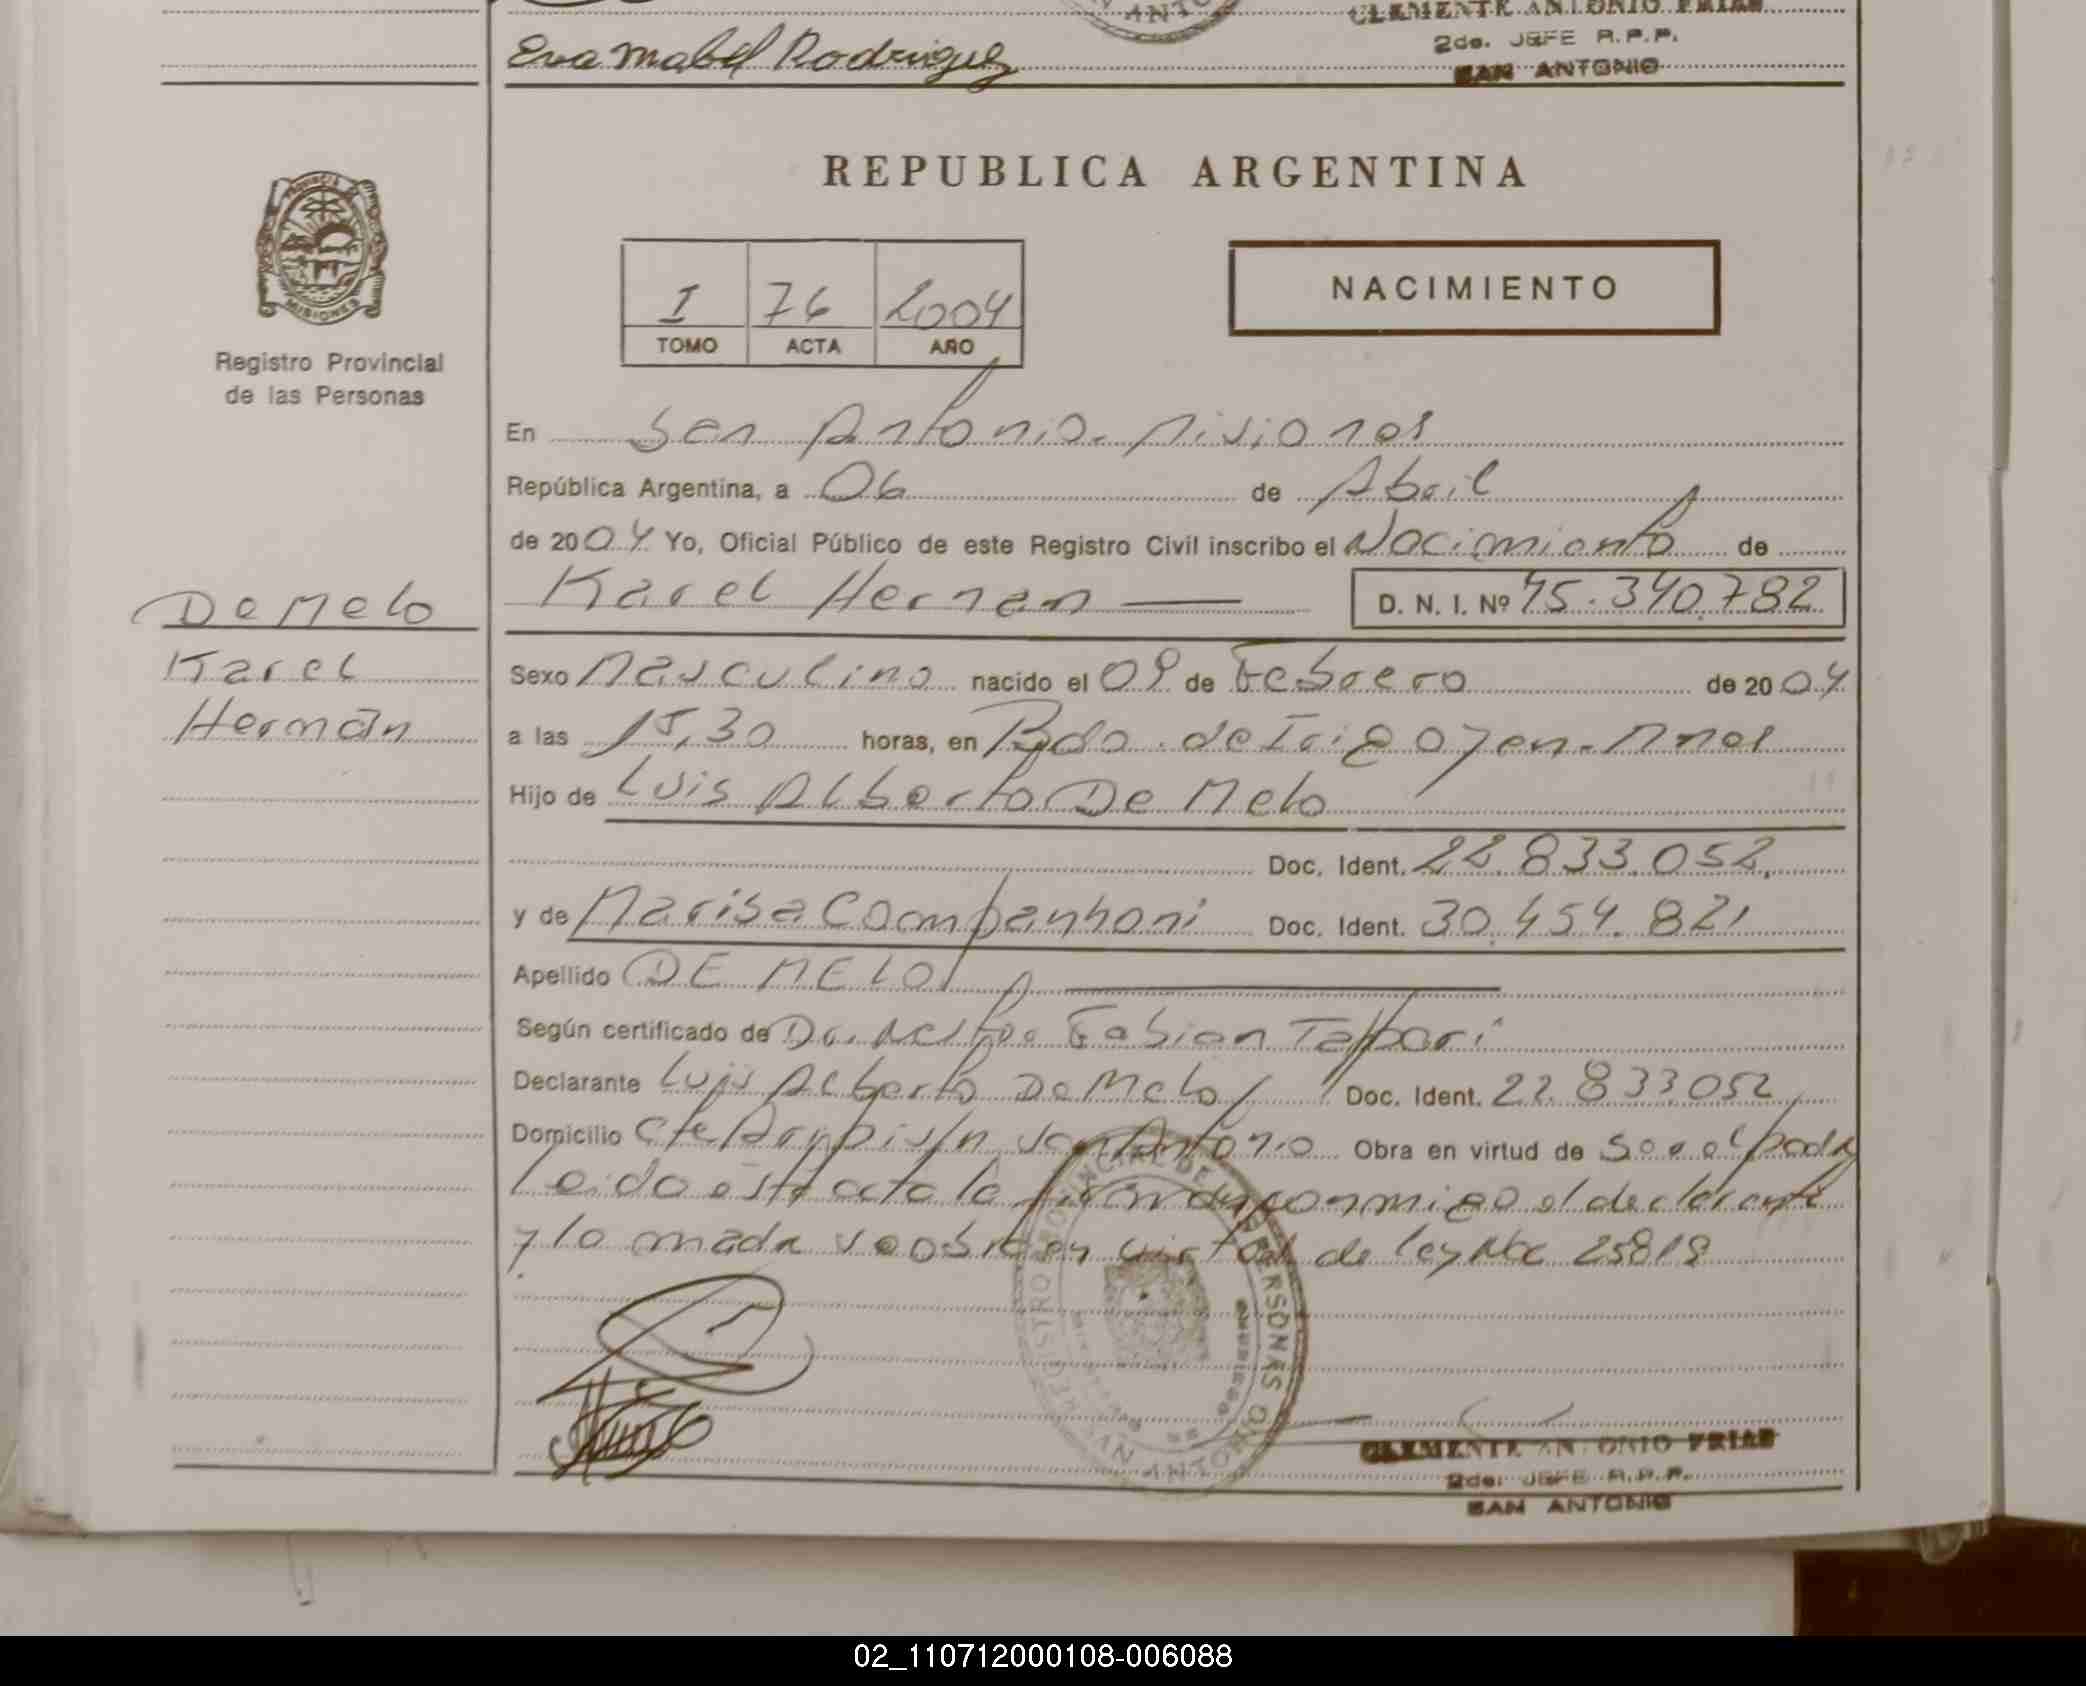 CLEMENTE ANTONIO FRIAS
2do. JEFE R.P.P.
SAN ANTONIO
Eva Mabel Rodriguez
REPUBLICA ARGENTINA
MISIONES
Registro Provincial
de las Personas
I 76 2004
TOMO ACTA AÑO
NACIMIENTO
En San Antonio. Misiones
República Argentina, a 06 de Abril
de 2004 Yo, Oficial Público de este Registro Civil inscribo el Nacimiento de
Karel Hernan D. N. I. Nº 45.340.782
De Melo
Karel
Hernán
Sexo Masculino nacido el 09 de Febrero de 2004
a las 15,30 horas, en Bdo. de Irigoyen. Mnes
Hijo de Luis Alberto De Melo
Doc. Ident. 22.833.052,
y de Marisa Companhoni Doc. Ident. 30.454.821
Apellido DE MELO
Según certificado de Dr. Fabian
Declarante Luis Alberto De Melo Doc. Ident. 22.833.052
Domicilio s/n San Antonio Obra en virtud de
Leida esta acta la firman conmigo el declarante
y la madre se obra en virtud de ley Nac 25819
REGISTRO PROVINCIAL DE LAS PERSONAS
SAN ANTONIO
CLEMENTE ANTONIO FRIAS
2do. JEFE R.P.P.
SAN ANTONIO
02_110712000108-006088